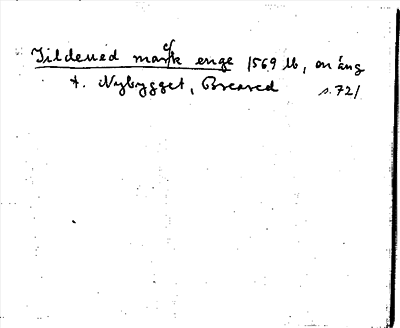 Tildened mark enge 1569 Jb, en äng
t. Nybygget, Breared s. 72/